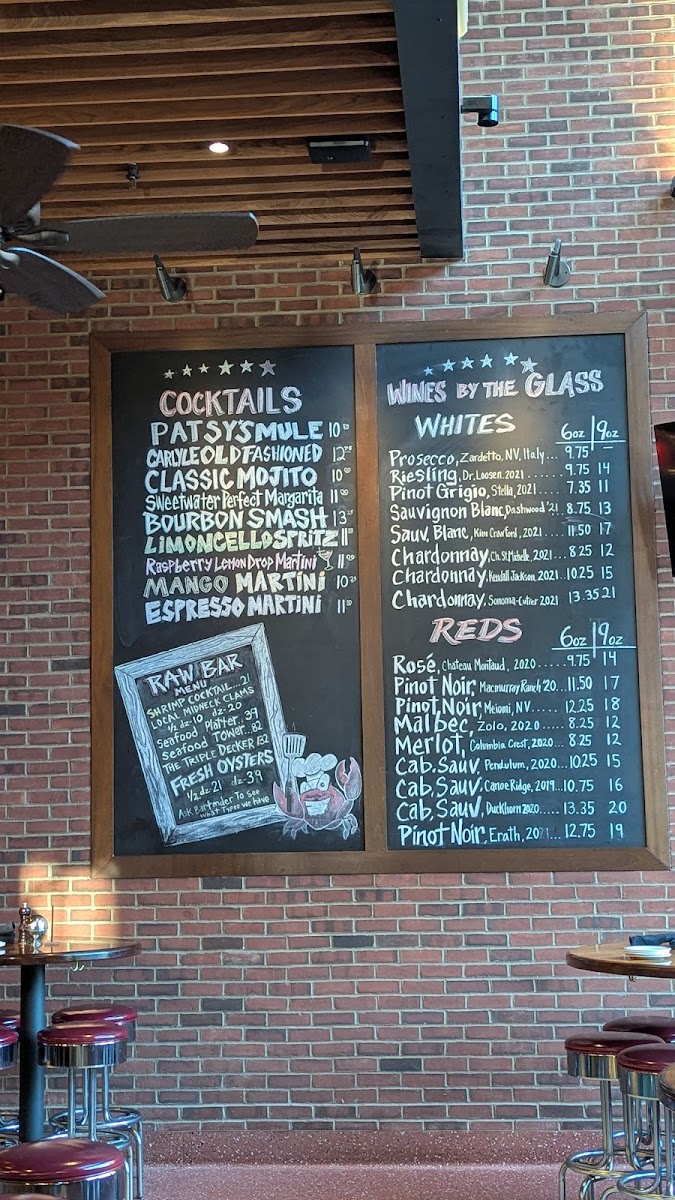 COCKTAILS
PATSY'S MULE 10
CARLYLE OLD FASHIONED 12
CLASSIC MOJITO 10
Sweetwater Perfect Margarita 11
BOURBON SMASH 13
LIMONCELLO SPRITZ 11
Raspberry Lemon Drop Martini 11
MANGO MARTINI 10
ESPRESSO MARTINI 11
RAW BAR
MENU
SHRIMP COCKTAIL...21
LOCAL MIDNECK CLAMS
½ dz. 10 dz. 20
Seafood Platter. 39
Seafood Tower...82
THE TRIPLE DECKER 152
FRESH OYSTERS
½ dz 21 dz 39
Ask Bartender To See
What Types we have
WINES BY THE GLASS
WHITES
6oz 9oz
Prosecco, Zardetto, NV, Italy... 9.75
Riesling, Dr. Loosen. 2021 9.75 14
Pinot Grigio, Stella, 2021..... 7.35 11
Sauvignon Blanc, Dashwood '21 8.75 13
Sauv. Blanc, Kim Crawford, 2021.... 11.50 17
Chardonnay, Ch. St. Michelle, 2021... 8.25 12
Chardonnay, Kendall Jackson, 2021.. 10.25 15
Chardonnay, Sonoma-Cutrer 2021 13.35 21
REDS
6oz 9oz
Rosé, Chateau Montaud, 2020..... 9.75 14
Pinot Noir, Macmurray Ranch '20... 11.50 17
Pinot Noir, Meiomi, NV..... 12.25 18
Malbec, Zolo, 2020........ 8.25 12
Merlot, Columbia Crest, 2020... 8.25 12
Cab. Sauv. Pendulum, 2020.... 10.25 15
Cab, Sauv. Canoe Ridge, 2019.. 10.75 16
Cab, Sauv. Duckhorn 2020..... 13.35 20
Pinot Noir, Erath, 2021... 12.75 19